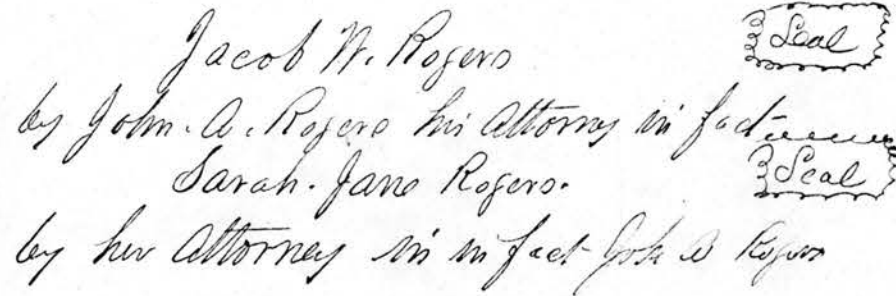 Jacob W. Rogers Seal
by John. A. Rogers his Attorney in fact
Sarah. Jane Rogers. Seal
by her Attorney in in fact Joh A Rogers